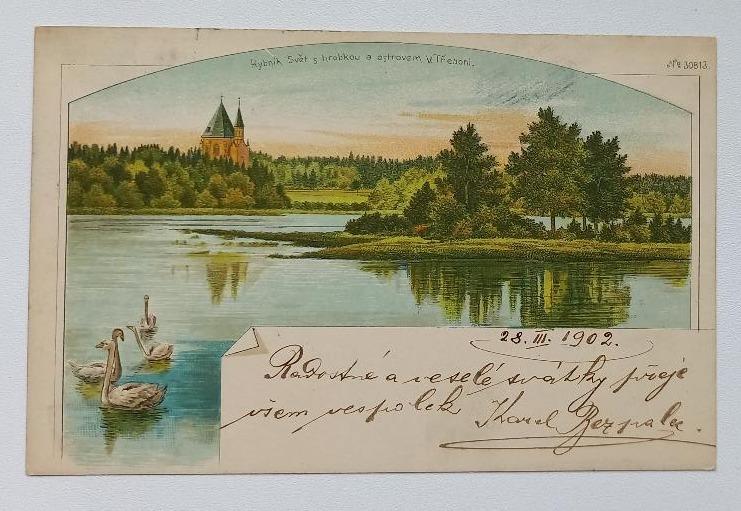 Rybník Svět s hrobkou a ostrovem u Třeboni.
№ 30813.
28. III. 1902.
Radostné a veselé svátky přeje
všem vespolek Karel Bezpalec.